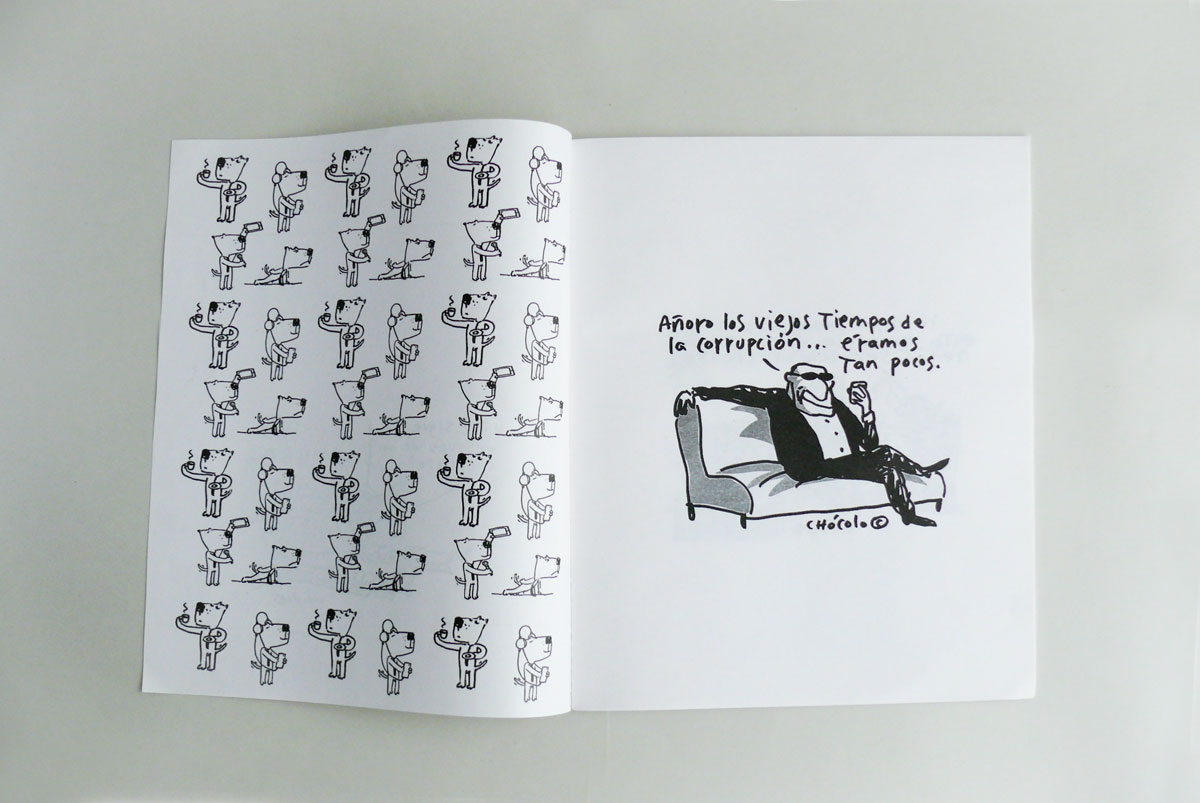 Añoro los viejos Tiempos de
la corrupción... éramos
Tan pocos.
CHócolo©